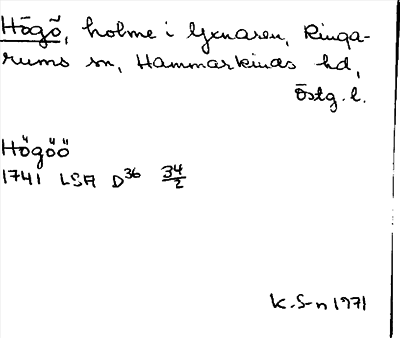 Högö, holme i Yxnaren, Ringa-
rums sn, Hammarkinds hd,
Östg. l.
Högöö
1741 LSA D36 34/2
K. S-n 1971